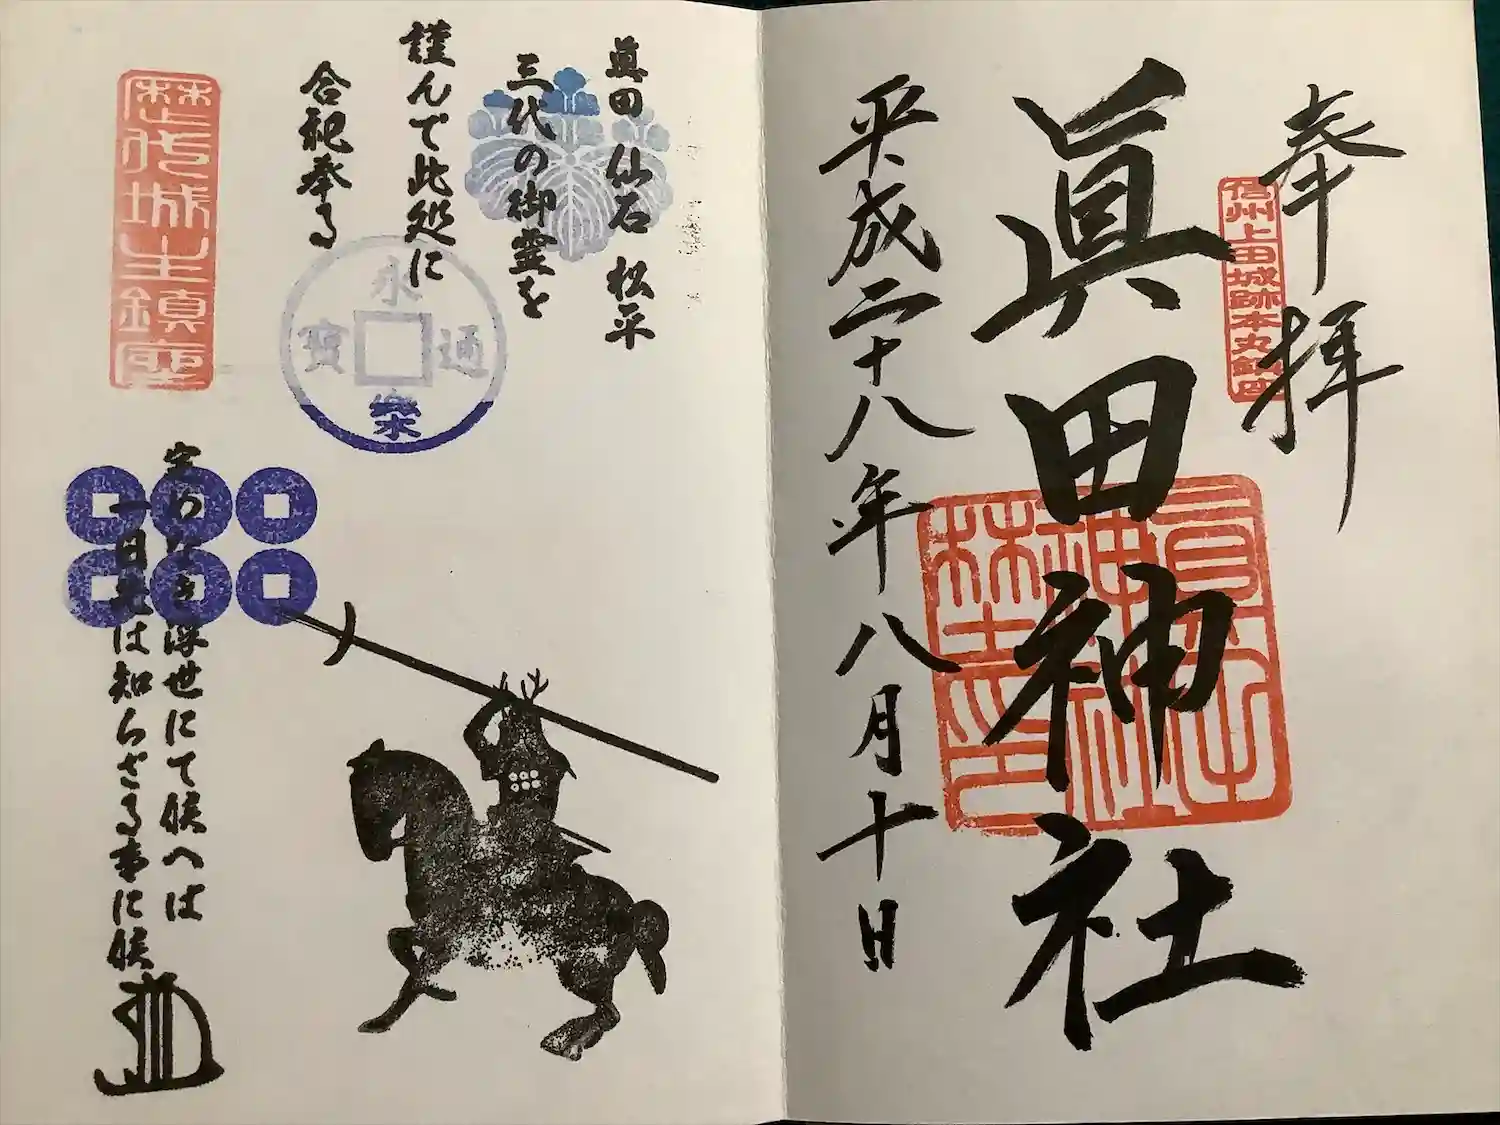 奉拝
信州上田城跡本丸鎮座
眞田神社
眞田神社之印
平成二十八年八月十日
眞田 仙石 松平
三代の御霊を
謹んで此処に
合祀奉る
永樂通寳
歴代城主鎮座
定めなき浮世にて候へば
一日先は知らざる事に候